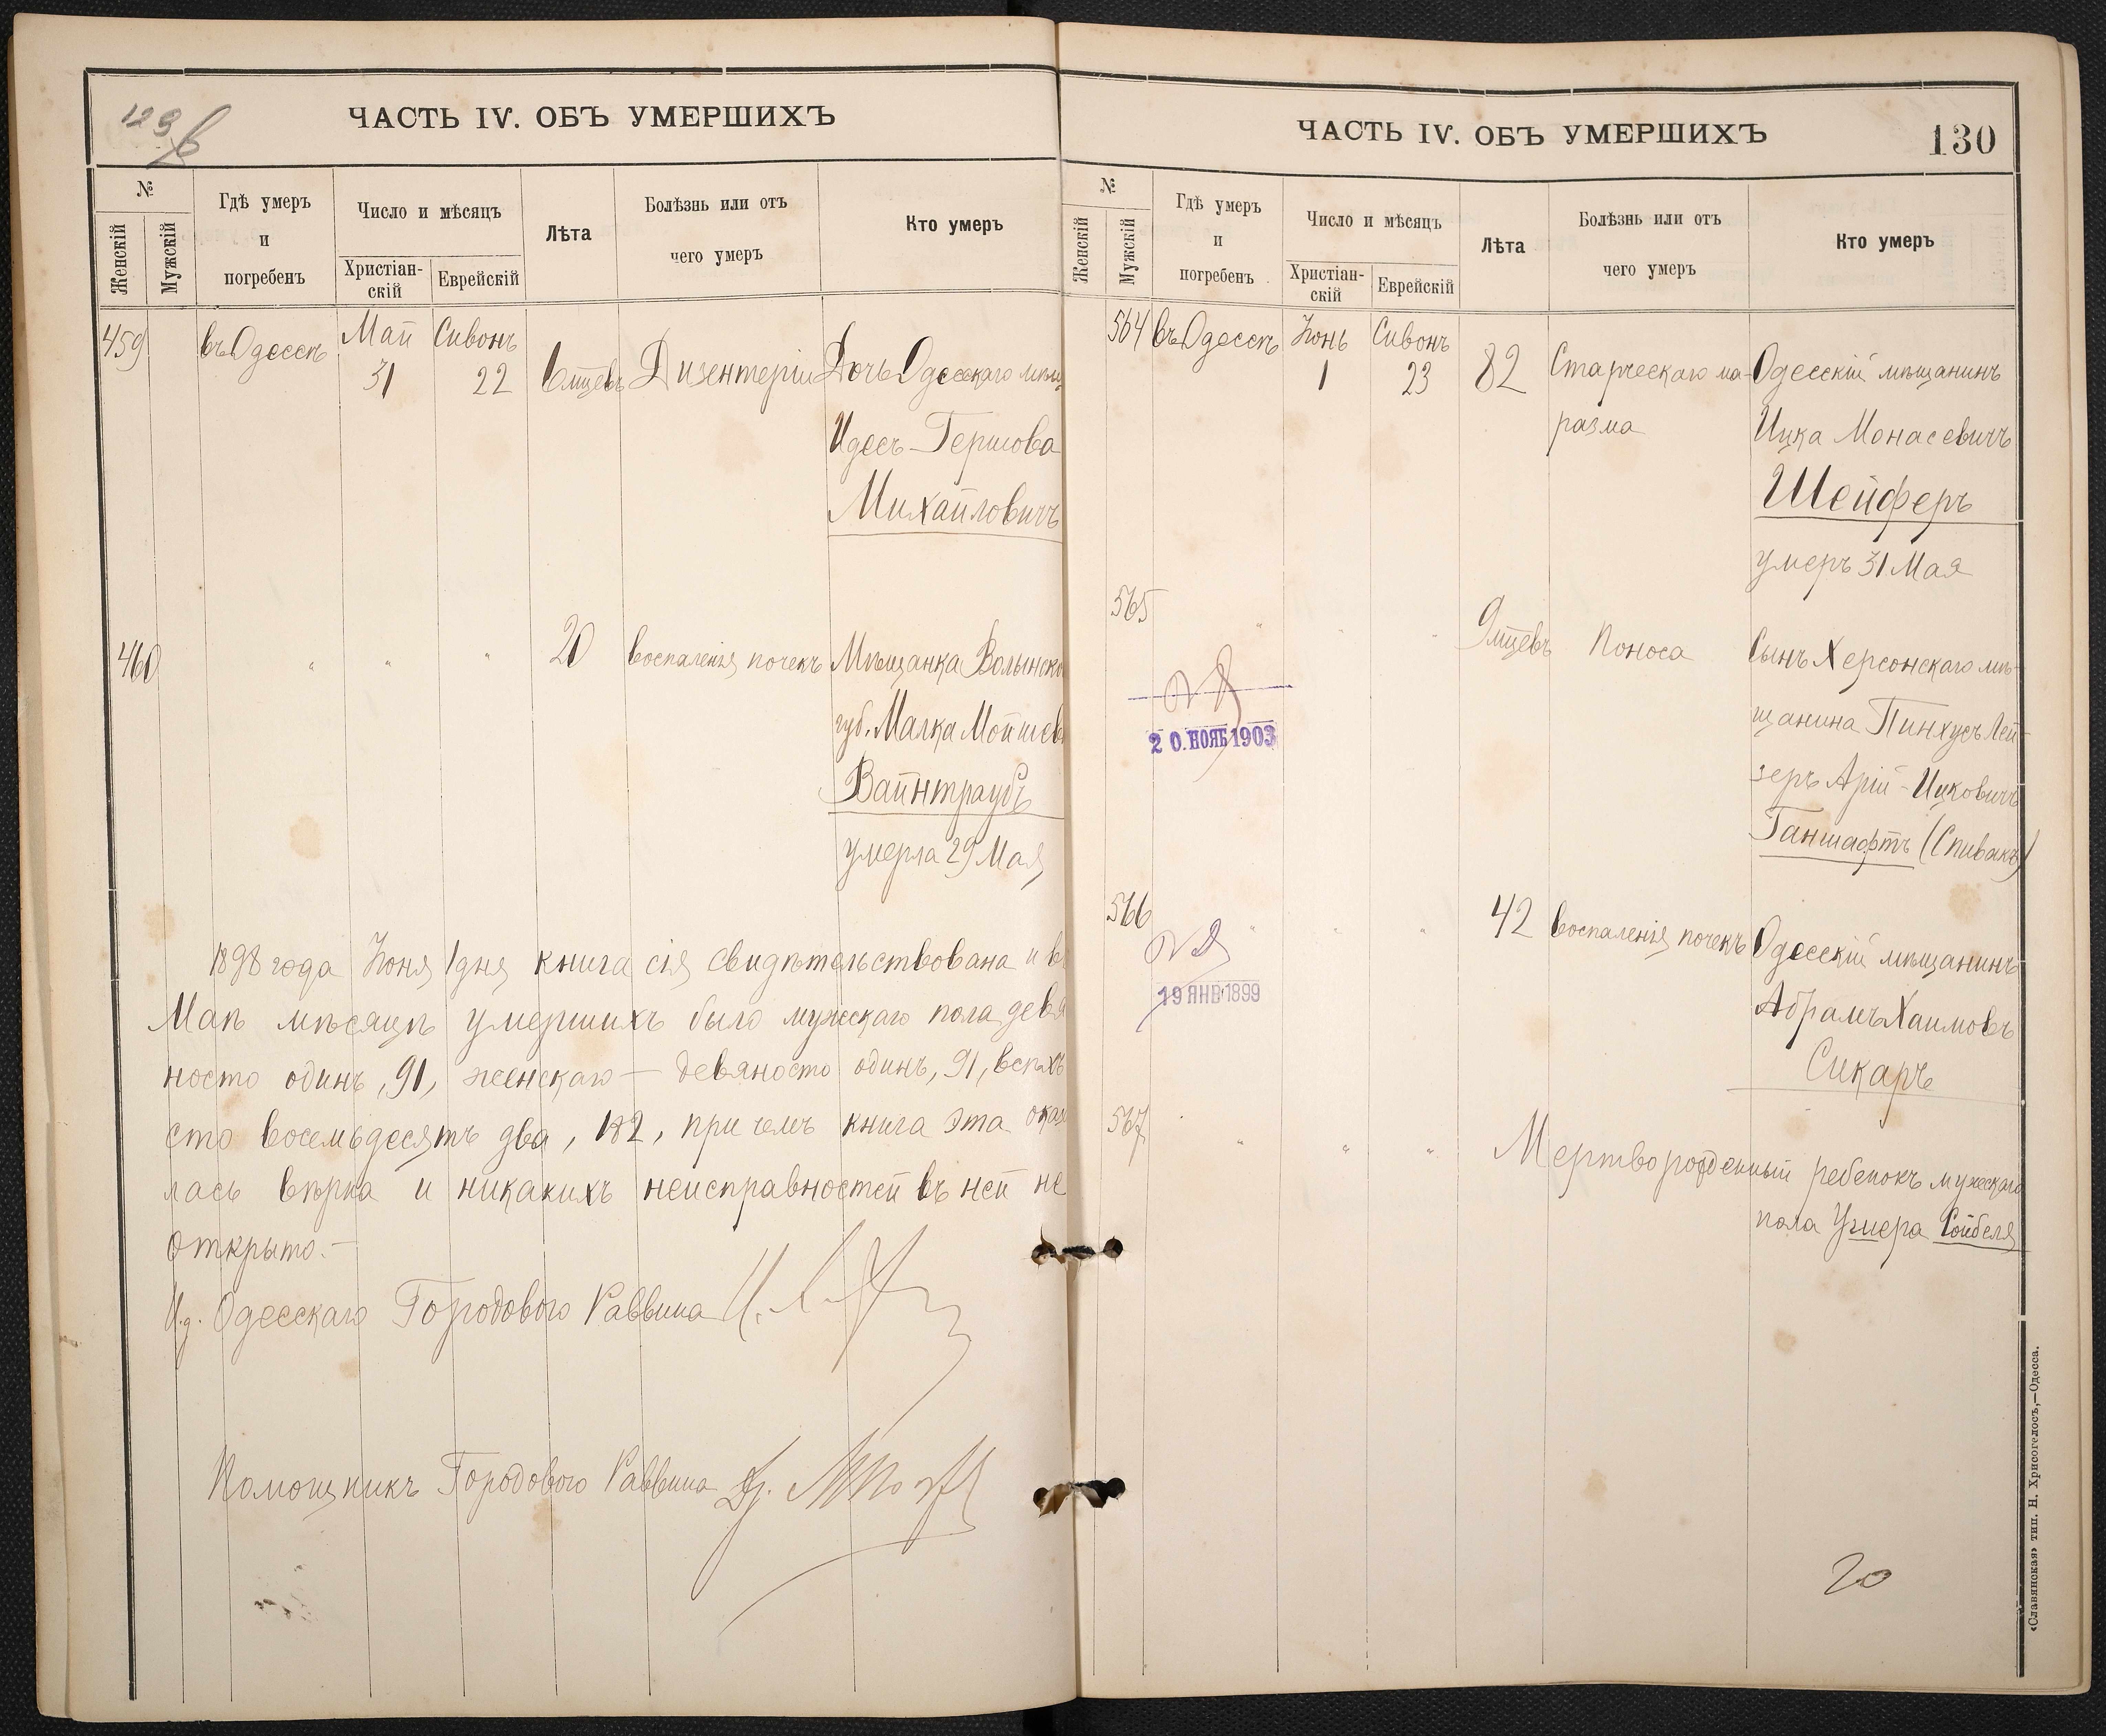 129
ЧАСТЬ IV. ОБЪ УМЕРШИХЪ
№
Женскій
Мужскій
Гдѣ умеръ и погребенъ
Число и мѣсяцъ
Христіан-скій
Еврейскій
Лѣта
Болѣзнь или отъ чего умеръ
Кто умеръ
459 въ Одессѣ Май 31 Сивонъ 22 6 мцевъ Дизентеріи Дочь Одесскаго мѣщ
Идесъ Гершова
Михайловичъ
460 " " " 20 воспаленія почекъ Мѣщанка Волынско
губ. Малка Мойшев
Вайнтраубъ
умерла 29 Мая
1898 года Іюня 1 дня книга сія свидѣтельствована и въ
Маѣ мѣсяцѣ умершихъ было мужескаго пола девя
носто одинъ, 91, женскаго — девяносто одинъ, 91, всѣхъ
сто восемьдесятъ два, 182, при чемъ книга эта оказа
лась вѣрна и никакихъ неисправностей въ ней не
открыто. —
И.д. Одесскаго Городового Раввина
Помощникъ Городового Раввина
ЧАСТЬ IV. ОБЪ УМЕРШИХЪ
130
№
Женскій
Мужскій
Гдѣ умеръ и погребенъ
Число и мѣсяцъ
Христіан-скій
Еврейскій
Лѣта
Болѣзнь или отъ чего умеръ
Кто умеръ
564 въ Одессѣ Іюнь 1 Сивонъ 23 82 Старческаго ма- Одесскій мѣщанинъ
разма Ицка Монасевичъ
Шейферъ
умеръ 31 Мая
565 " " " 9 мцевъ Поноса Сынъ Херсонскаго мѣ-
щанина Пинхусъ Лей-
зеръ Арій-Ицковичъ
Ганшафтъ (Спивакъ)
20. НОЯБ 1903
566 " " " 42 воспаленія почекъ Одесскій мѣщанинъ
Абрамъ Хаимовъ
Сикаръ
19 ЯНВ 1899
567 " " " Мертворожденный ребенокъ мужескаго
пола Ушера Сойбеля
20
«Славянская» тип. Н. Хрисогелосъ,—Одесса.